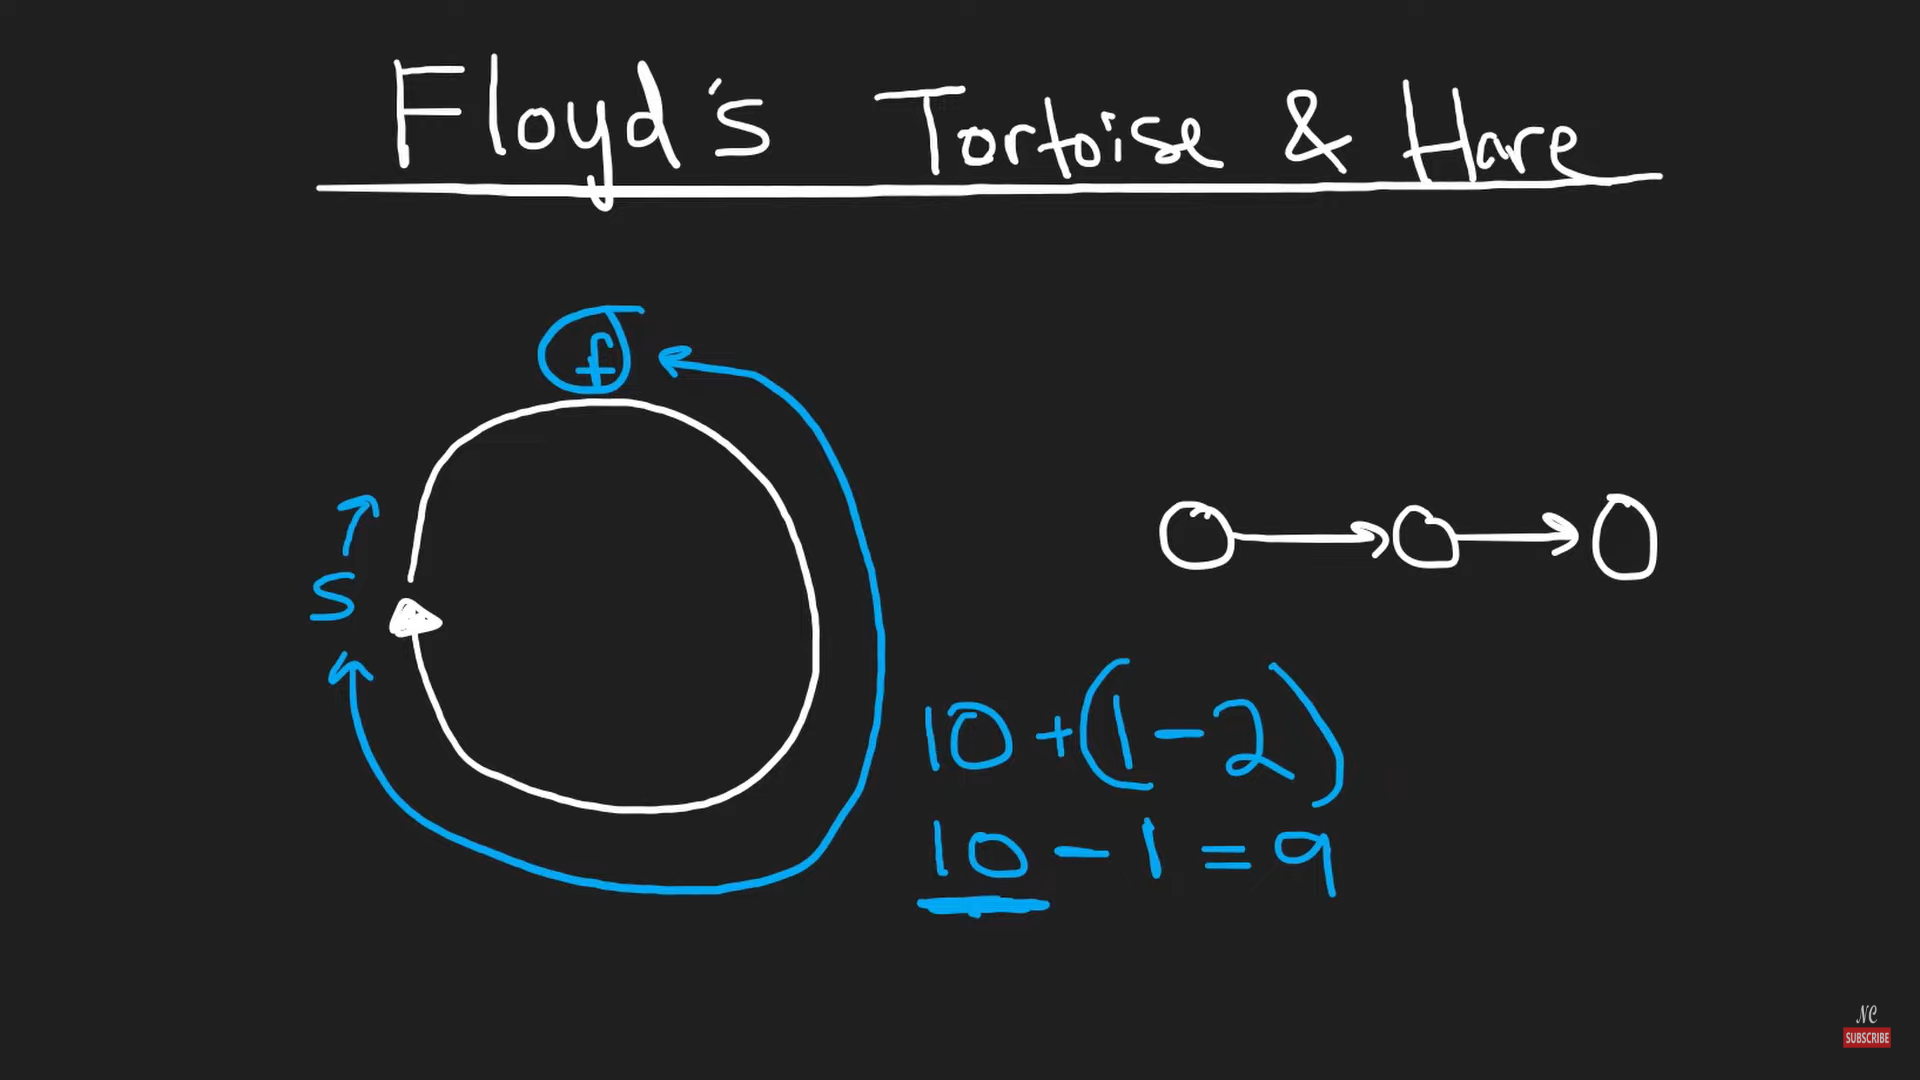 Floyd's Tortoise & Hare
f
S
10 + (1 - 2)
10 - 1 = 9
NC
SUBSCRIBE